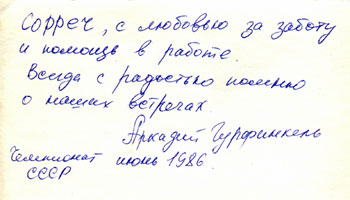 с любовью за заботу
и помощь в работе.
Всегда с радостью помню
о наших встречах.
Аркадий Гурфинкель
Чемпионат июнь 1986
СССР